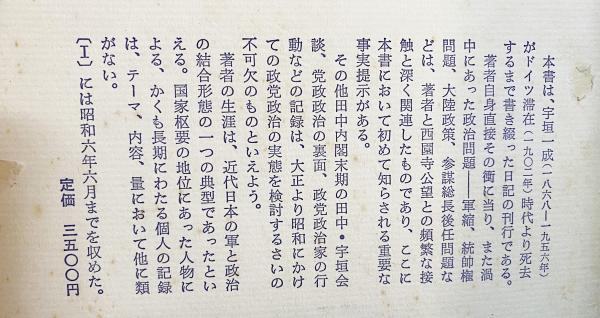 本書は、宇垣一成(一八六八―一九五六年)
がドイツ滞在(一九〇二年)時代より死去
するまで書き綴った日記の刊行である。
著者自身直接その衝に当り、また渦
中にあった政治問題――軍縮、統帥権
問題、大陸政策、参謀総長後任問題な
どは、著者と西園寺公望との頻繁な接
触と深く関連したものであり、ここに
本書において初めて知らされる重要な
事実提示がある。
その他田中内閣末期の田中・宇垣会
談、党政政治の裏面、政党政治家の行
動などの記録は、大正より昭和にかけ
ての政党政治の実態を検討するさいの
不可欠のものといえよう。
著者の生涯は、近代日本の軍と政治
の結合形態の一つの典型であったとい
える。国家枢要の地位にあった人物に
よる、かくも長期にわたる個人の記録
は、テーマ、内容、量において他に類
がない。
〔Ⅰ〕には昭和六年六月までを収めた。
定価 三五〇〇円